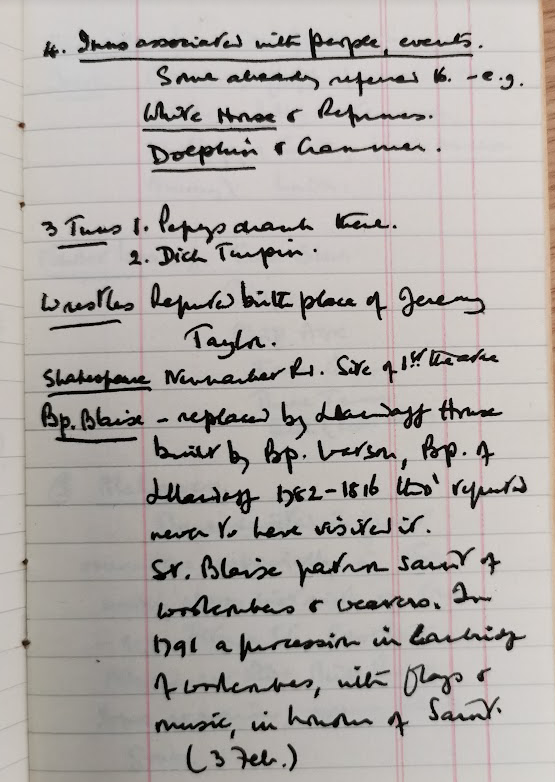 4. Inns associated with people, events.
Some already referred to. - e.g.
White Horse & Reformers.
Dolphin & Cranmer.
3 Tuns 1. Pepys drank there.
2. Dick Turpin.
Wrestlers Reputed birth place of Jeremy
Taylor.
Shakespeare Newmarket Rd. Site of 1st theatre
Bp. Blaise - replaced by Llandaff House
built by Bp. Watson, Bp. of
Llandaff 1782-1816 tho' reputed
never to have visited it.
St. Blaise patron saint of
woolcombers & weavers. In
1791 a procession in Cambridge
of woolcombers, with flags &
music, in honour of Saint.
(3 Feb.)